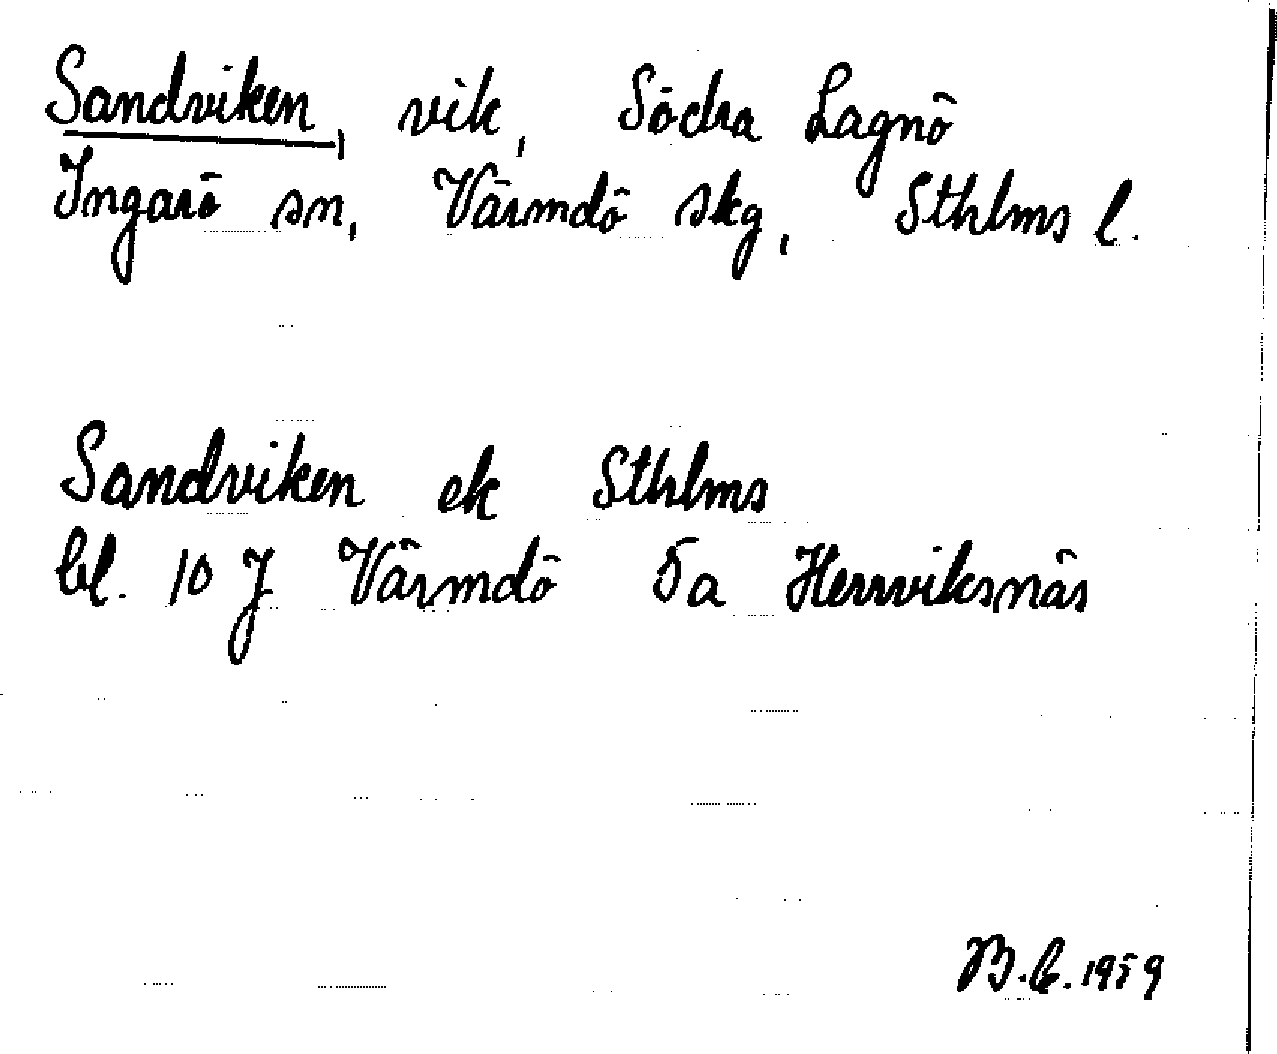 Sandviken, vik, Södra Lagnö
Ingarö sn, Värmdö skg, Sthlms l.
Sandviken ek Sthlms
bl. 10 J Värmdö 5a Herrviksnäs
B.C. 1959